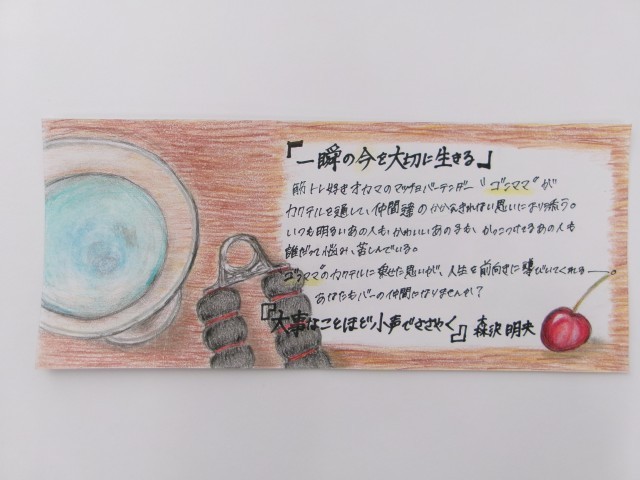 「一瞬の今を大切に生きる」
筋トレ好きオカマのマッチョバーテンダー〝ゴンママ〟が
カクテルを通して、仲間達の かかえきれない思いにより添う。
いつも明るいあの人も、かわいいあの子も、かっこつけてるあの人も
誰だって悩み、苦しんでいる。
ゴンママのカクテルに乗せた思いが、人生を前向きに導びいてくれる――。
あなたもバーの仲間になりませんか?
『大事なことほど小声でささやく』 森沢 明夫